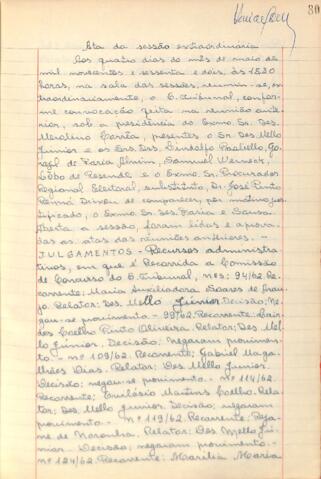 30
Ata da sessão extraordinária
Aos quatro dias do mês de maio de
mil novecentos e sessenta e dois, às 1820
horas, na sala das sessões, reuniu-se, ex-
traordinariamente, o E. Tribunal, confor-
me convocação feita na reunião ante-
rior, sob a presidência do Exmo. Sr. Des.
Merolino Corrêa, presentes o Sr. Des. Mello
Júnior e os Srs. Drs. Lindolfo Paoliello, Go-
rasil de Faria Alvim, Samuel Werneck,
Lôbo de Resende e o Exmo. Sr. Procurador
Regional Eleitoral, substituto, Dr. José Pinto
Rennó. Deixou de comparecer, por motivo jus-
tificado, o Exmo. Sr. Des. Faria e Sousa.
Aberta a sessão, foram lidas e aprova-
das as atas das reuniões anteriores. -
JULGAMENTOS - Recursos administra-
tivos, em que é Recorrida a Comissão
de Concurso do E. Tribunal, nºs: 94/62. Re-
corrente: Maria Auxiliadora Soares de Arau-
jo. Relator: Des. Mello Júnior. Decisão: Ne-
gau-se provimento. - 99/62. Recorrente:
Coelho Pinto Oliveira. Relator: Des. Mel-
lo Júnior. Decisão: Negaram provimen-
to. - nº 109/62. Recorrente: Gabriel Maga-
lhães Dias. Relator: Des. Mello Júnior.
Decisão: negou-se provimento. - nº 114/62.
Recorrente: Eustásio Martins Coelho. Rela-
tor: Des. Mello Júnior. Decisão: negaram
provimento. - nº 119/62. Recorrente:
ne de Noronha. Relator: Des. Mello Jú-
nior. Decisão: negaram provimento. -
nº 124/62. Recorrente: Marília Maria